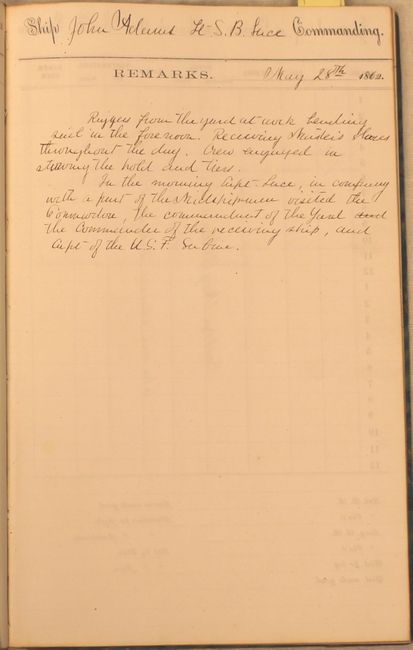 Ship John Adams Lt. S. B. Luce Commanding.
REMARKS. May 28th 1862.
Riggers from the yard at work bending
sail in the forenoon. Receiving Stores
throughout the day. Crew engaged in
stowing the hold and tiers.
In the morning Capt. Luce, in company
with a part of the Midshipmen visited the
Commodore, the commandant of the Yard and
the Commander of the receiving ship, and
Capt of the U.S.F.